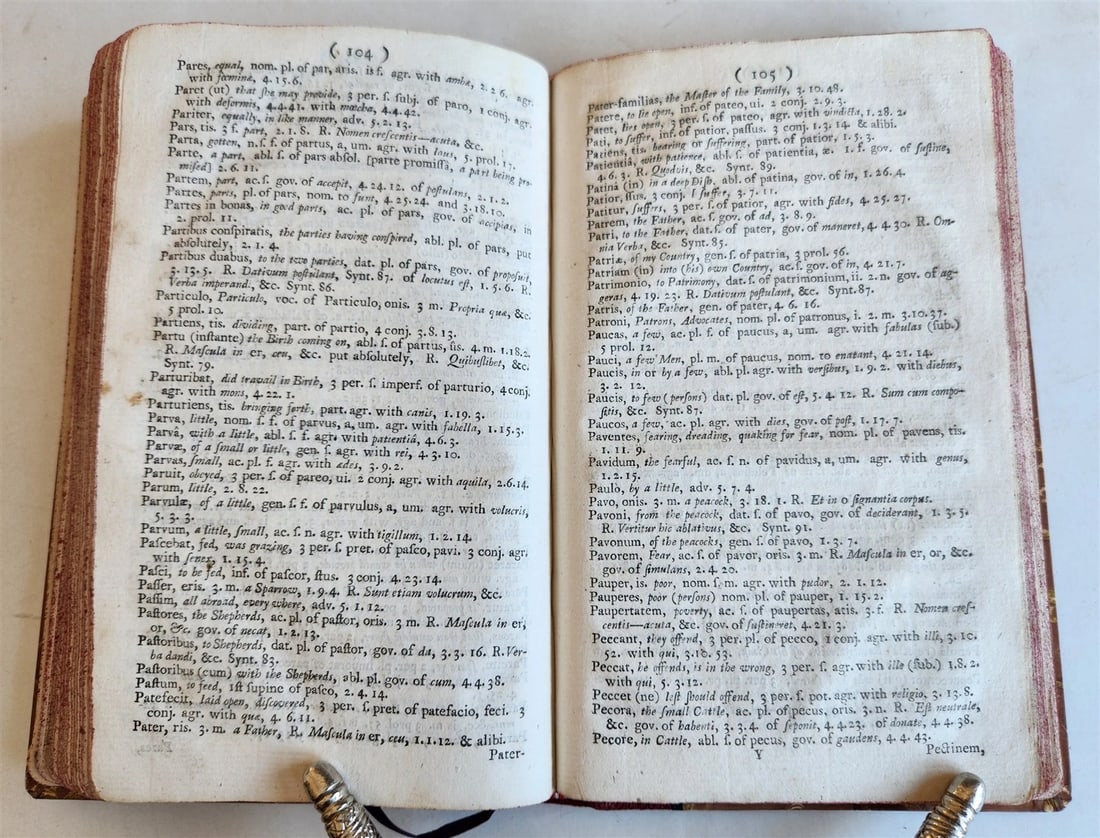 ( 104 )
Pares, equal, nom. pl. of par, aris. is f. agr. with amba, 2. 2 6. agr.
with fœminæ, 4. 15. 6.
Paret (ut) that ſhe may provide, 3 per. ſ. ſubj. of paro, 1 conj. agr.
with deformis, 4.4.41. with mœcha, 4.4.42.
Pariter, equally, in like manner, adv. 5. 2. 13.
Pars, tis. 3 f. part, 2. 1. 8. R. Nomen creſcentis—acuta, &c.
Parta, gotten, n. ſ. f. of partus, a, um. agr. with laus, 5. prol. 17.
Parte, a part, abl. ſ. of pars abſol. [parte promiſſâ, a part being pro-
miſed] 2. 6. 11.
Partem, part, ac. ſ. gov. of accepit, 4. 24. 12. of poſtulans, 2. 1. 2.
Partes, parts, pl. of pars, nom. to ſunt, 4. 25. 24. and 3. 18. 10.
Partes in bonas, in good parts, ac. pl. of pars, gov. of accipias, in
2. prol. 11.
Partibus conſpiratis, the parties having conſpired, abl. pl. of pars, put
abſolutely, 2. 1. 4.
Partibus duabus, to the two parties, dat. pl. of pars, gov. of propoſuit,
3. 13. 5. R. Dativum poſtulant, Synt. 87. of locutus eſt, 1. 5. 6. R.
Verba imperand. &c. Synt. 86.
Particulo, Particulo, voc. of Particulo, onis. 3 m. Propria quæ, &c.
5 prol. 10.
Partiens, tis. dividing, part. of partio, 4 conj. 3. 8. 13.
Partu (inſtante) the Birth coming on, abl. ſ. of partus, ûs. 4. m. 1. 18. 2.
R. Maſcula in er, ceu, &c. put abſolutely, R. Quibuſlibet, &c.
Synt. 79.
Parturibat, did travail in Birth, 3 per. ſ. imperf. of parturio, 4 conj.
agr. with mons, 4. 22. 1.
Parturiens, tis. bringing forth, part. agr. with canis, 1. 19. 3.
Parva, little, nom. ſ. f. of parvus, a, um. agr. with fabella, 1. 15. 3.
Parvâ, with a little, abl. ſ. f. agr. with patientiâ, 4. 6. 3.
Parvæ, of a ſmall or little, gen. ſ. agr. with rei, 4. 3. 10.
Parvas, ſmall, ac. pl. f. agr. with ædes, 3. 9. 2.
Paruit, obeyed, 3 per. ſ. of pareo, ui. 2 conj. agr. with aquila, 2.6.14.
Parum, little, 2. 8. 22.
Parvulæ, of a little, gen. ſ. f. of parvulus, a, um. agr. with volucris,
5. 3. 3.
Parvum, a little, ſmall, ac. ſ. n. agr. with tigillum, 1. 2. 14.
Paſcebat, fed, was grazing, 3 per ſ. pret. of paſco, pavi. 3 conj. agr.
with ſenex, 1. 15. 4.
Paſci, to be fed, inf. of paſcor, ſtus. 3 conj. 4. 23. 14.
Paſſer, eris. 3. m. a Sparrow, 1. 9. 4. R. Sunt etiam volucrum, &c.
Paſſim, all abroad, every where, adv. 5. 1. 12.
Paſtores, the Shepherds, ac. pl. of paſtor, oris. 3 m. R Maſcula in er,
or, &c. gov. of necat, 1. 2. 13.
Paſtoribus, to Shepherds, dat. pl. of paſtor, gov. of da, 3. 3. 16. R. Ver-
ba dandi, &c. Synt. 83.
Paſtoribus (cum) with the Shepherds, abl. pl. gov. of cum, 4. 4. 38.
Paſtum, to feed, 1ſt ſupine of paſco, 2. 4. 14.
Patefecit, laid open, diſcovered, 3 per. ſ. pret. of patefacio, feci. 3
conj. agr. with quæ, 4. 6. 11.
Pater, ris. 3. m. a Father, R. Maſcula in er, ceu, 1. 1. 12. & alibi.
Pater-
( 105 )
Pater-familias, the Maſter of the Family, 3. 10. 48.
Patere, to lie open, inf. of pateo, ui. 2 conj. 2. 9. 3.
Patet, lies open, 3 per. ſ. of pateo, agr. with vindicta, 1. 28. 2.
Pati, to ſuffer, inf. of patior, paſſus. 3 conj. 1. 3. 14 & alibi.
Patiens, tis. bearing or ſuffering, part. of patior, 1. 5. 3.
Patientiâ, with patience, abl. ſ. of patientia, æ. 1. f. gov. of ſuſtine,
4. 6. 3. R. Quodvis, &c. Synt. 89.
Patinâ (in) in a deep Diſh. abl. of patina, gov. of in, 1. 26. 4.
Patior, ſſus. 3 conj. I ſuffer, 3. 7. 11.
Patitur, ſuffers, 3 per. ſ. of patior, agr. with fides, 4. 25. 27.
Patrem, the Father, ac. ſ. gov. of ad, 3. 8. 9.
Patri, to the Father, dat. ſ. of pater, gov. of maneret, 4. 4. 30. R. Om-
nia Verba, &c. Synt. 85.
Patriæ, of my Country, gen. ſ. of patria, 3 prol. 56.
Patriam (in) into (his) own Country, ac. ſ. gov. of in, 4. 21. 7.
Patrimonio, to Patrimony, dat. ſ. of patrimonium, ii. 2. n. gov. of ag-
geras, 4. 19. 23. R. Dativum poſtulant, &c. Synt. 87.
Patris, of the Father, gen. of pater, 4. 6. 16.
Patroni, Patrons, Advocates, nom. pl. of patronus, i. 2. m. 3.10.37.
Paucas, a few, ac. pl. f. of paucus, a, um. agr. with fabulas (ſub.)
5 prol. 12.
Pauci, a few Men, pl. m. of paucus, nom. to enatant, 4. 21. 14.
Paucis, in or by a few, abl. pl. agr. with verſibus, 1. 9. 2. with diebus,
3. 2. 12.
Paucis, to few (perſons) dat. pl. gov. of eſt, 5. 4. 12. R. Sum cum compo-
ſitis, &c. Synt. 87.
Paucos, a few, ac. pl. agr. with dies, gov. of poſt, 1. 17. 7.
Paventes, fearing, dreading, quaking for fear, nom. pl. of pavens, tis.
1. 11. 9.
Pavidum, the fearful, ac. ſ. n. of pavidus, a, um. agr. with genus,
1. 2. 15.
Paulò, by a little, adv. 5. 7. 4.
Pavo, onis. 3. m. a peacock, 3. 18. 1. R. Et in o ſignantia corpus.
Pavoni, from the peacock, dat. ſ. of pavo, gov. of deciderant, 1. 3. 5.
R. Vertitur hic ablativus, &c. Synt. 91.
Pavonum, of the peacocks, gen. ſ. of pavo, 1. 3. 7.
Pavorem, Fear, ac. ſ. of pavor, oris. 3. m. R. Maſcula in er, or, &c.
gov. of ſimulans, 2. 4. 20.
Pauper, is. poor, nom. ſ. m. agr. with pudor, 2. 1. 12.
Pauperes, poor (perſons) nom. pl. of pauper, 1. 15. 2.
Paupertatem, poverty, ac. ſ. of paupertas, atis. 3. f. R. Nomen creſ-
centis—acuta, &c. gov. of ſuſtineret, 4. 21. 3.
Peccant, they offend, 3 per. pl. of pecco, 1 conj. agr. with illi, 3. 10.
52. with qui, 3. 10. 53.
Peccat, he offends, is in the wrong, 3 per. ſ. agr. with ille (ſub.) 1. 8. 2.
with qui, 5. 3. 12.
Peccet (ne) leſt ſhould offend, 3 per. ſ. pot. agr. with religio, 3. 13. 8.
Pecora, the ſmall Cattle, ac. pl. of pecus, oris. 3. n. R. Eſt neutrale,
&c. gov. of habenti, 3. 3. 4. of ſeponit, 4. 4. 23. of donate, 4. 4. 38.
Pecore, in Cattle, abl. ſ. of pecus, gov. of gaudens, 4. 4. 43.
Y
Pectinem,